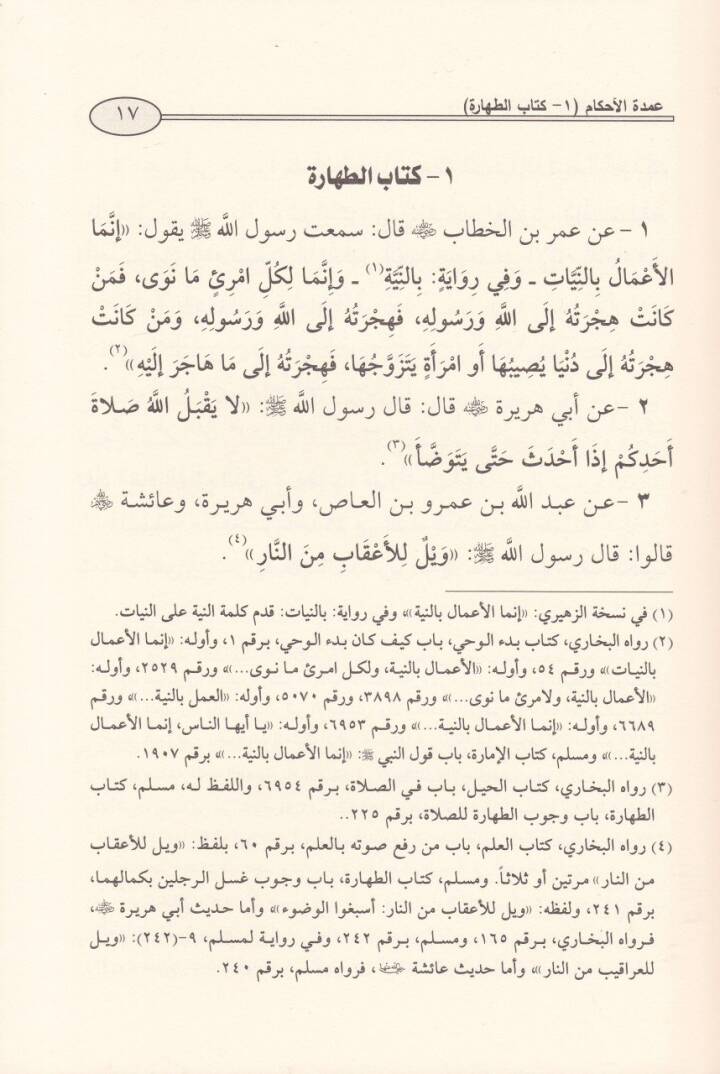 عمدة الأحكام (١- كتاب الطهارة)
١٧
١- كتاب الطهارة
١ - عن عمر بن الخطاب رضي الله عنه قال: سمعت رسول اللَّه ﷺ يقول: «إِنَّمَا
الأَعْمَالُ بِالنِّيَّاتِ ـ وَفِي رِوَايَةٍ: بِالنِّيَّةِ(١) ـ وَإِنَّمَا لِكُلِّ امْرِئٍ مَا نَوَى، فَمَنْ
كَانَتْ هِجْرَتُهُ إِلَى اللَّهِ وَرَسُولِهِ، فَهِجْرَتُهُ إِلَى اللَّهِ وَرَسُولِهِ، وَمَنْ كَانَتْ
هِجْرَتُهُ إِلَى دُنْيَا يُصِيبُهَا أَو امْرَأَةٍ يَتَزَوَّجُهَا، فَهِجْرَتُهُ إِلَى مَا هَاجَرَ إِلَيْهِ»(٢).
٢ -عن أبي هريرة رضي الله عنه قال: قال رسول اللَّه ﷺ: «لا يَقْبَلُ اللَّهُ صَلاةَ
أَحَدِكُمْ إِذَا أَحْدَثَ حَتَّى يَتَوَضَّأَ»(٣).
٣ -عن عبد اللَّه بن عمرو بن العاص، وأبي هريرة، وعائشة رضي الله عنهم
قالوا: قال رسول اللَّه ﷺ: «وَيْلٌ لِلأَعْقَابِ مِنَ النَّارِ»(٤).
(١) في نسخة الزهيري: «إنما الأعمال بالنية» وفي رواية: بالنيات: قدم كلمة النية على النيات.
(٢) رواه البخاري، كتاب بدء الوحي، باب كيف كان بدء الوحي، برقم ١، وأوله: «إنما الأعمال
بالنيات» ورقم ٥٤، وأوله: «الأعمال بالنية، ولكل امرئ ما نوى...» ورقم ٢٥٢٩، وأوله:
«الأعمال بالنية، ولامرئ ما نوى...» ورقم ٣٨٩٨، ورقم ٥٠٧٠، وأوله: «العمل بالنية...» ورقم
٦٦٨٩، وأوله: «إنما الأعمال بالنية...» ورقم ٦٩٥٣، وأوله: «يا أيها الناس، إنما الأعمال
بالنية...» ومسلم، كتاب الإمارة، باب قول النبي ﷺ: «إنما الأعمال بالنية...» برقم ١٩٠٧.
(٣) رواه البخاري، كتاب الحيل، باب في الصلاة، برقم ٦٩٥٤، واللفظ له، مسلم، كتاب
الطهارة، باب وجوب الطهارة للصلاة، برقم ٢٢٥..
(٤) رواه البخاري، كتاب العلم، باب من رفع صوته بالعلم، برقم ٦٠، بلفظ: «ويل للأعقاب
من النار» مرتين أو ثلاثاً. ومسلم، كتاب الطهارة، باب وجوب غسل الرجلين بكمالهما،
برقم ٢٤١، ولفظه: «ويل للأعقاب من النار: أسبغوا الوضوء» وأما حديث أبي هريرة رضي الله عنه،
فرواه البخاري، برقم ١٦٥، ومسلم، برقم ٢٤٢، وفي رواية لمسلم، ٩-(٢٤٢): «ويل
للعراقيب من النار» وأما حديث عائشة رضي الله عنها، فرواه مسلم، برقم ٢٤٠.